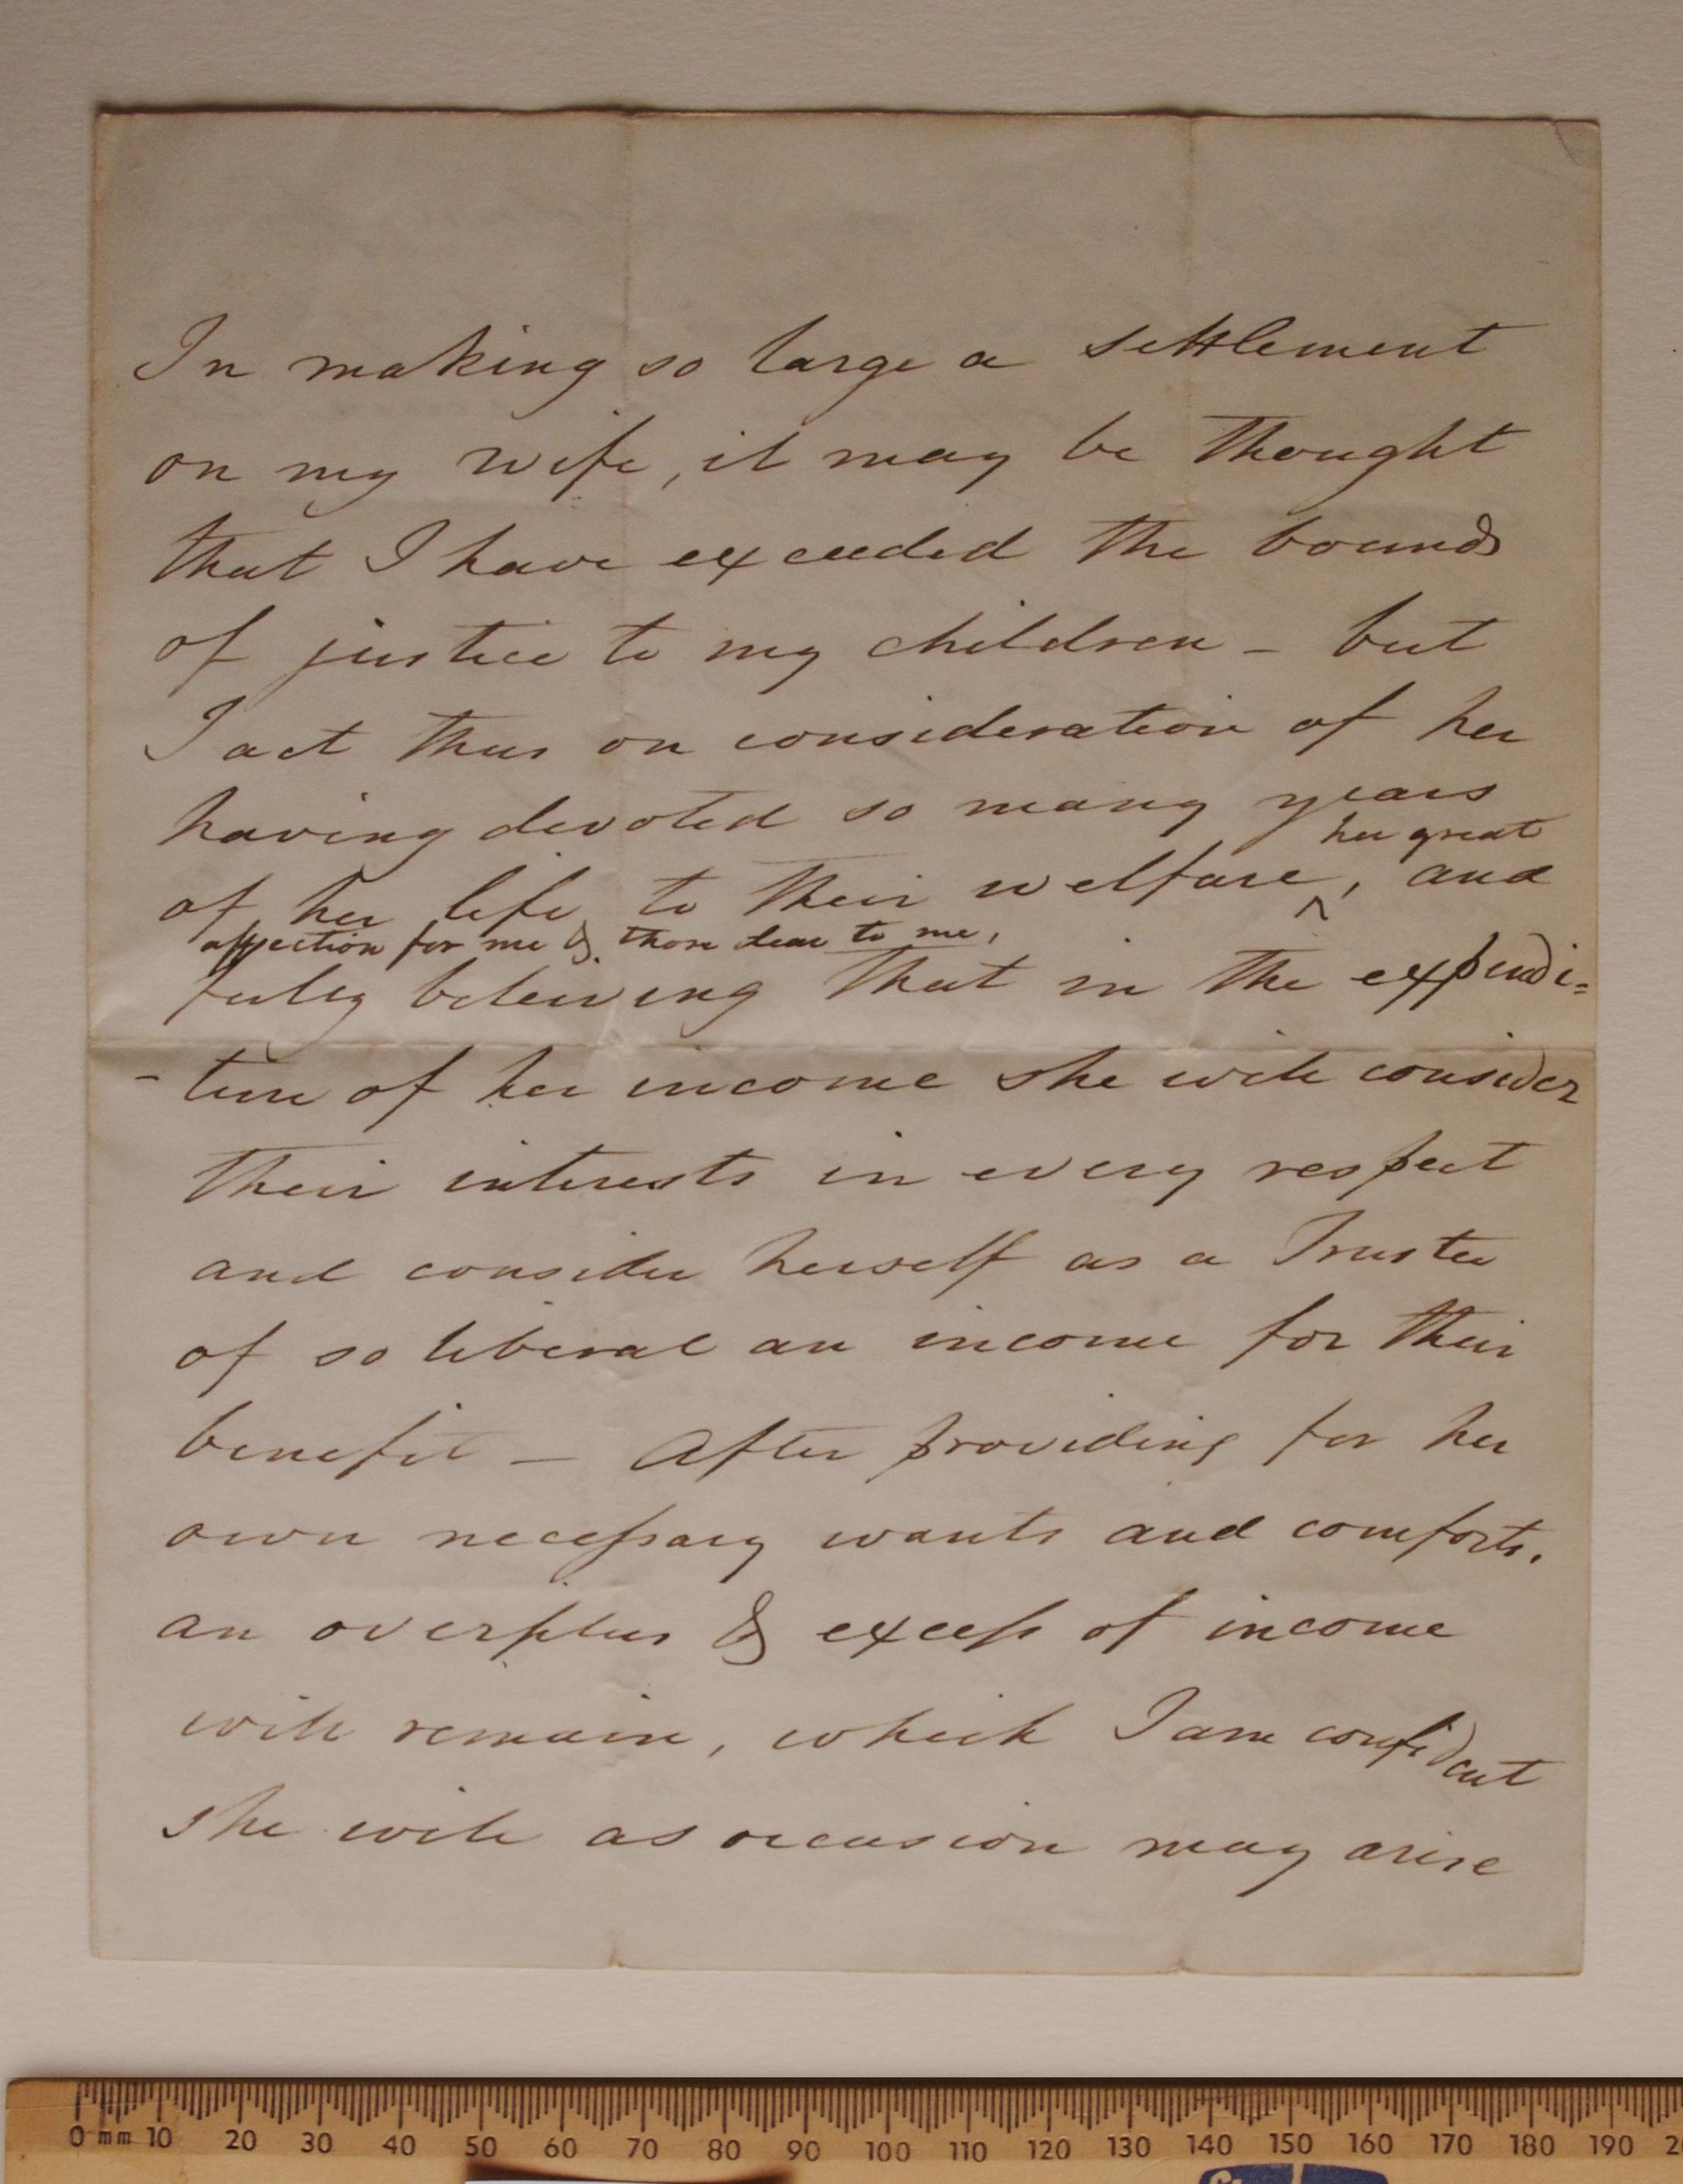 In making so large a settlement
on my wife, it may be thought
that I have exceeded the bounds
of justice to my children - but
I act thus on consideration of her
having devoted so many years
her great
of her life to their welfare ^, and
affection for me & those dear to me,
fully beleiving that in the expendi=
-ture of her income she will consider
their interests in every respect
and consider herself as a Trustee
of so liberal an income for their
benefit - After providing for her
own necessary wants and comforts.
an overplus & excess of income
will remain, which I am confident
she will as occasion may arise
0 mm 10 20 30 40 50 60 70 80 90 100 110 120 130 140 150 160 170 180 190